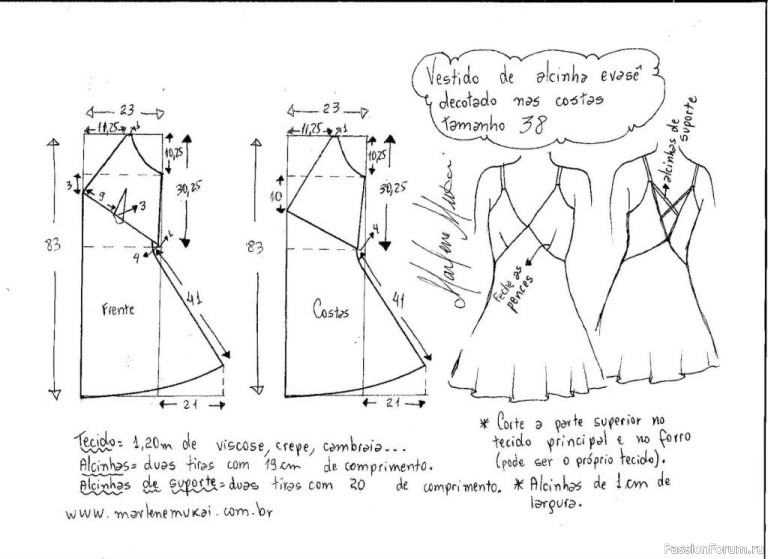 Vestido de alcinha evasê
decotado nas costas
tamanho 38
23
11,25
1
10,25
3
9
3
30,25
83
4
1
41
Frente
21
23
11,25
1
10,25
10
30,25
83
4
41
Costas
21
Marlene Mukai
alcinhas de
suporte
Feche as
pences
* Corte a parte superior no
tecido principal e no forro
(pode ser o próprio tecido).
* Alcinhas de 1 cm de
largura.
Tecido = 1,20m de viscose, crepe, cambraia...
Alcinhas = duas tiras com 19 cm de comprimento.
Alcinhas de suporte = duas tiras com 20 de comprimento.
www.marlenemukai.com.br
PassionForum.ru